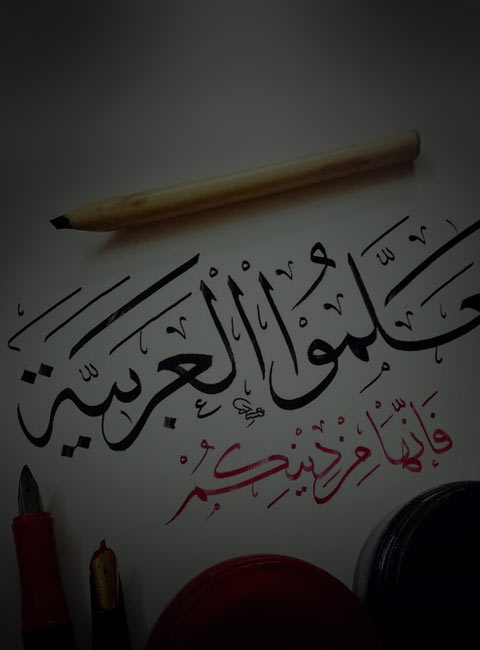 عَلَّمُوا الْعَرَبِيَّةَ
فَإِنَّهَا مِنْ دِينِكُمْ